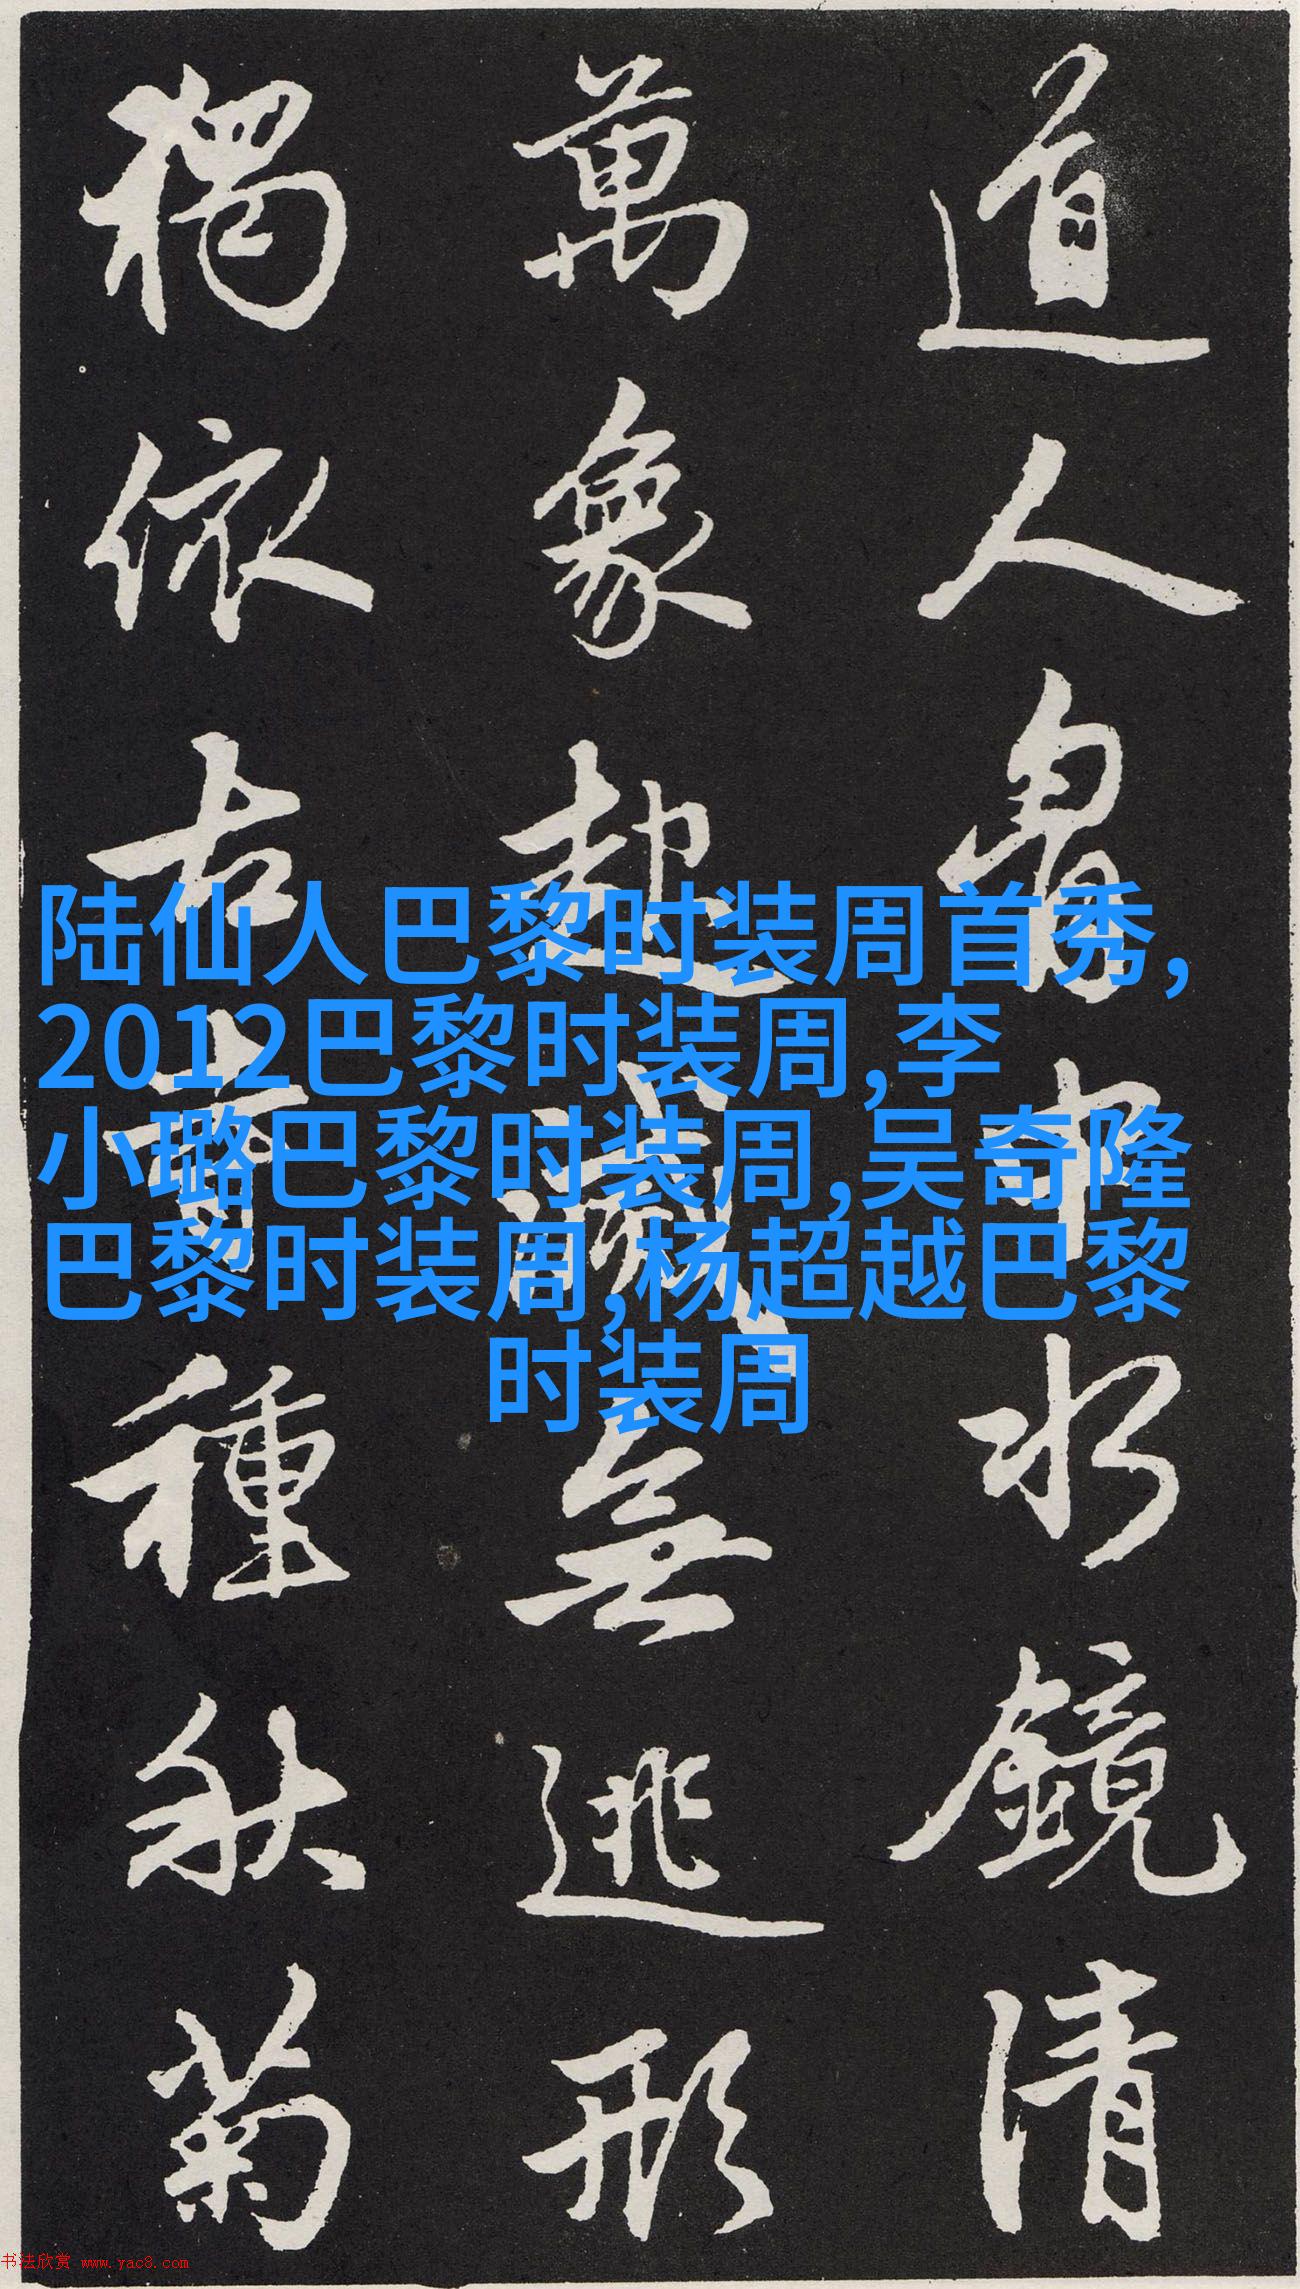 道人胷中水鏡清
萬象起滅無逃形
獨依古寺種秋菊
陆仙人巴黎时装周首秀,
2012巴黎时装周,李
小璐巴黎时装周,吴奇隆
巴黎时装周,杨超越巴黎
时装周
书法欣赏 www.yac8.com